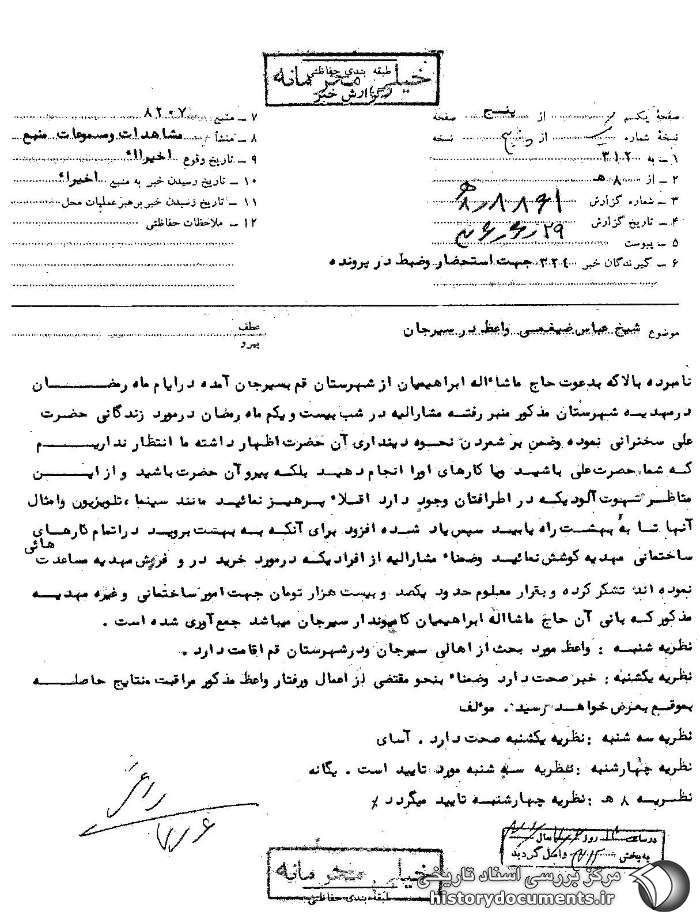 طبقه بندی حفاظتی
خیلی محرمانه
گزارش خبر
صفحه یکم از پنج صفحه
نسخه شماره از نسخه
۱ - به ۳۱۲
۲ - از ۸ هـ
۳ - شماره گزارش
۴ - تاریخ گزارش
۵ - پیوست
۶ - گیرندگان خبر ۳۲۴ جهت استحضار وضبط در پرونده
۷ - منبع ۸۲۰۷
۸ - منشأ مشاهدات ومسموعات منبع
۹ - تاریخ وقوع اخیراً
۱۰ - تاریخ رسیدن خبر به منبع اخیراً
۱۱ - تاریخ رسیدن خبر برهبر عملیات محل
۱۲ - ملاحظات حفاظتی
موضوع شیخ عباس ضیغمی واعظ در سیرجان
عطف
پیرو
نامبرده بالاکه بدعوت حاج ماشاءاله ابراهیمیان از شهرستان قم بسیرجان آمده درایام ماه رمضان
درمهدیه شهرستان مذکور منبر رفته مشارالیه در شب بیست ویکم ماه رمضان درمورد زندگانی حضرت
علی سخنرانی نموده وضمن بر شمردن نحوه دینداری آن حضرت اظهار داشته ما انتظار نداریم
که شما حضرت علی باشید ویا کارهای اورا انجام دهید بلکه پیرو آن حضرت باشید و از این
مناظر شهوت آلودیکه در اطرافتان وجود دارد اقلاً پرهیز نمائید مانند سینما ،تلویزیون وامثال
آنها تا به بهشت راه یابید سپس یاد شده افزود برای آنکه به بهشت بروید دراتمام کارهای
ساختمانی مهدیه کوشش نمائید وضمناً مشارالیه از افرادیکه درمورد خرید در و فرش مهدیه مساعدت هائی
نموده اند تشکر کرده و بقرار معلوم حدود یکصد و بیست هزار تومان جهت امور ساختمانی وغیره مهدیه
مذکور که بانی آن حاج ماشااله ابراهیمیان کامیوندار سیرجان میباشد جمع آوری شده است .
نظریه شنبه : واعظ مورد بحث از اهالی سیرجان ودر شهرستان قم اقامت دارد .
نظریه یکشنبه : خبر صحت دارد وضمناً بنحو مقتضی از اعمال ورفتار واعظ مذکور مراقبت ونتایج حاصله
بموقع بعرض خواهد رسید . مولف
نظریه سه شنبه : نظریه یکشنبه صحت دارد . آسای
نظریه چهارشنبه : نظریه سه شنبه مورد تایید است . یگانه
نظریه ۸ هـ : نظریه چهارشنبه تایید میگردد
در ساعت روز سال
به بخش واصل گردید
خیلی محرمانه
طبقه بندی حفاظتی
مرکز بررسی اسناد تاریخی
historydocuments.ir